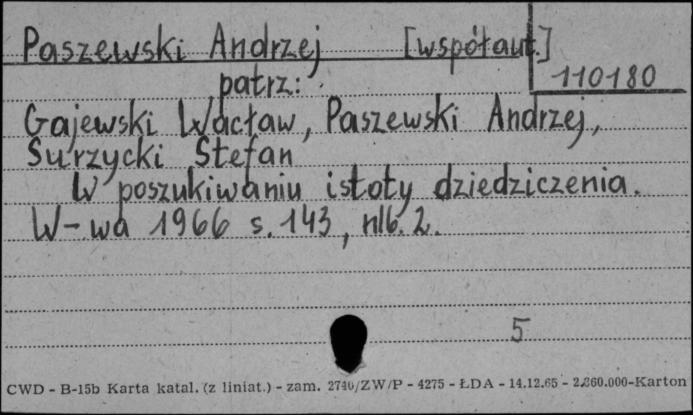 Paszewski Andrzej [współaut.]
110180
patrz:
Gajewski Wacław, Paszewski Andrzej,
Surzycki Stefan
W poszukiwaniu istoty dziedziczenia.
W-wa 1966 s. 143, nlb. 2.
5
CWD - B-15b Karta katal. (z liniat.) - zam. 2740/ZW/P - 4275 - ŁDA - 14.12.65 - 2.260.000-Karton